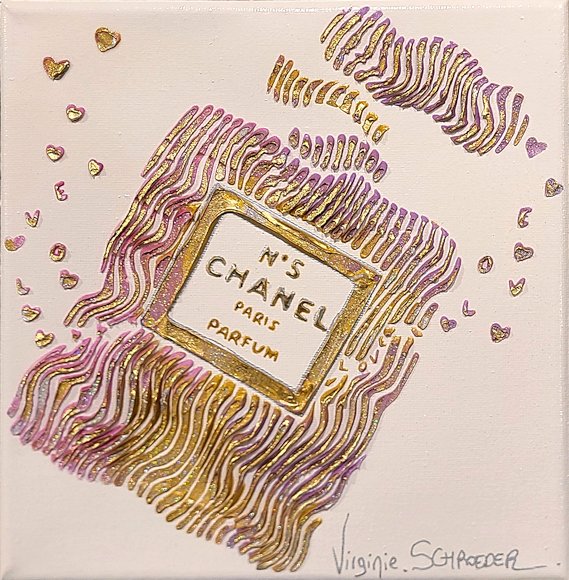 N°5
CHANEL
PARIS
PARFUM
LOVE
LOVE
Virginie. SCHROEDER